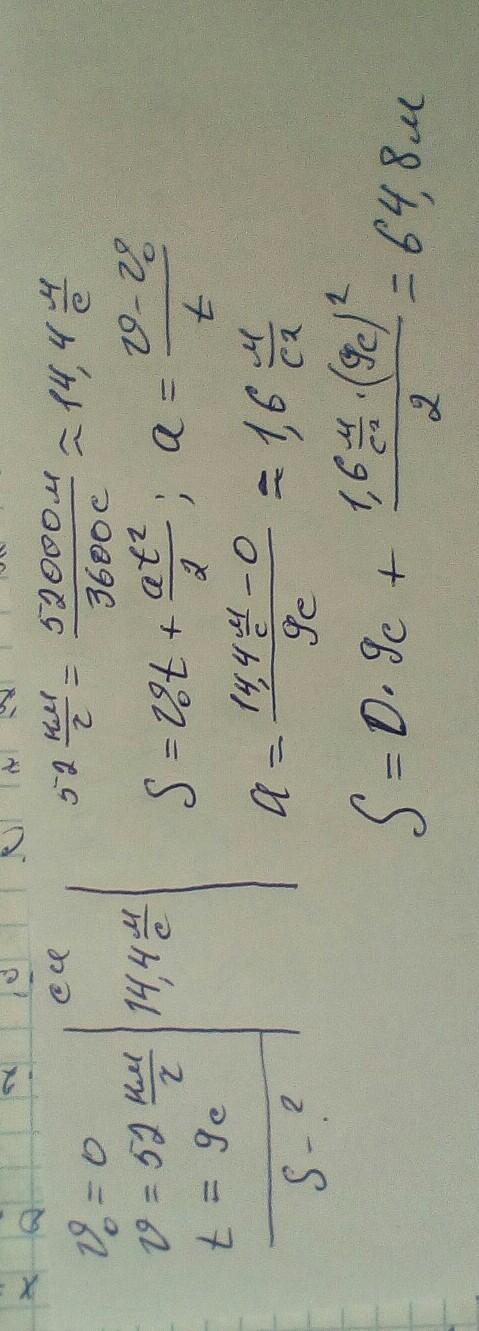 v₀ = 0
v = 52 км/г
t = 9с
S - ?
си
14,4 м/с
52 км/г = 52000м/3600с ≈ 14,4 м/с
S = v₀t + at²/2 ; a = v - v₀/t
a = 14,4 м/с - 0/9с ≈ 1,6 м/с²
S = 0 · 9с + 1,6 м/с² · (9с)²/2 = 64,8м